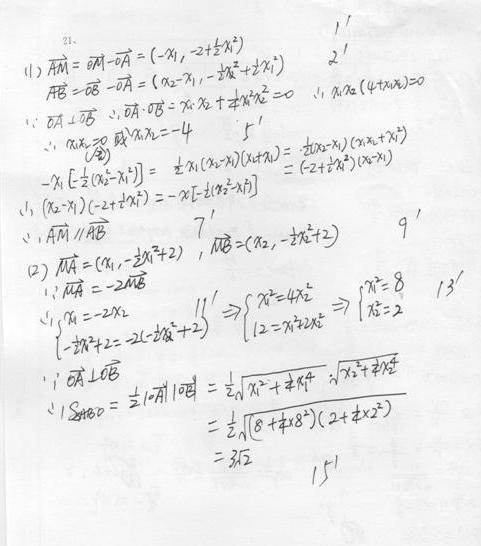 21.
(1) AM = OM - OA = (-x₁, -2+½x₁²) 1'
AB = OB - OA = (x₂-x₁, -½x₂²+½x₁²) 2'
∵ OA⊥OB ∴ OA·OB = x₁·x₂ + ¼x₁²x₂² = 0 ∴ x₁x₂(4+x₁x₂)=0
∴ x₁x₂=0 或 x₁x₂=-4 5'
(舍)
-x₁[-½(x₂²-x₁²)] = ½x₁(x₂-x₁)(x₂+x₁) = ½(x₂-x₁)(x₁x₂+x₁²)
= (-2+½x₁²)(x₂-x₁)
∴ (x₂-x₁)(-2+½x₁²) = -x[-½(x₂²-x₁²)]
∴ AM∥AB 7'
(2) MA = (x₁, -½x₁²+2), MB = (x₂, -½x₂²+2) 9'
∵ MA = -2MB
∴ { x₁=-2x₂ -½x₁²+2=-2(-½x₂²+2) 11' ⇒ { x₁²=4x₂² 12=x₁²+2x₂² ⇒ { x₁²=8 x₂²=2 13'
∵ OA⊥OB
∴ S△ABO = ½|OA||OB| = ½√(x₁²+¼x₁⁴)·√(x₂²+¼x₂⁴)
= ½√((8+¼×8²)(2+¼×2²))
= 3√2 15'